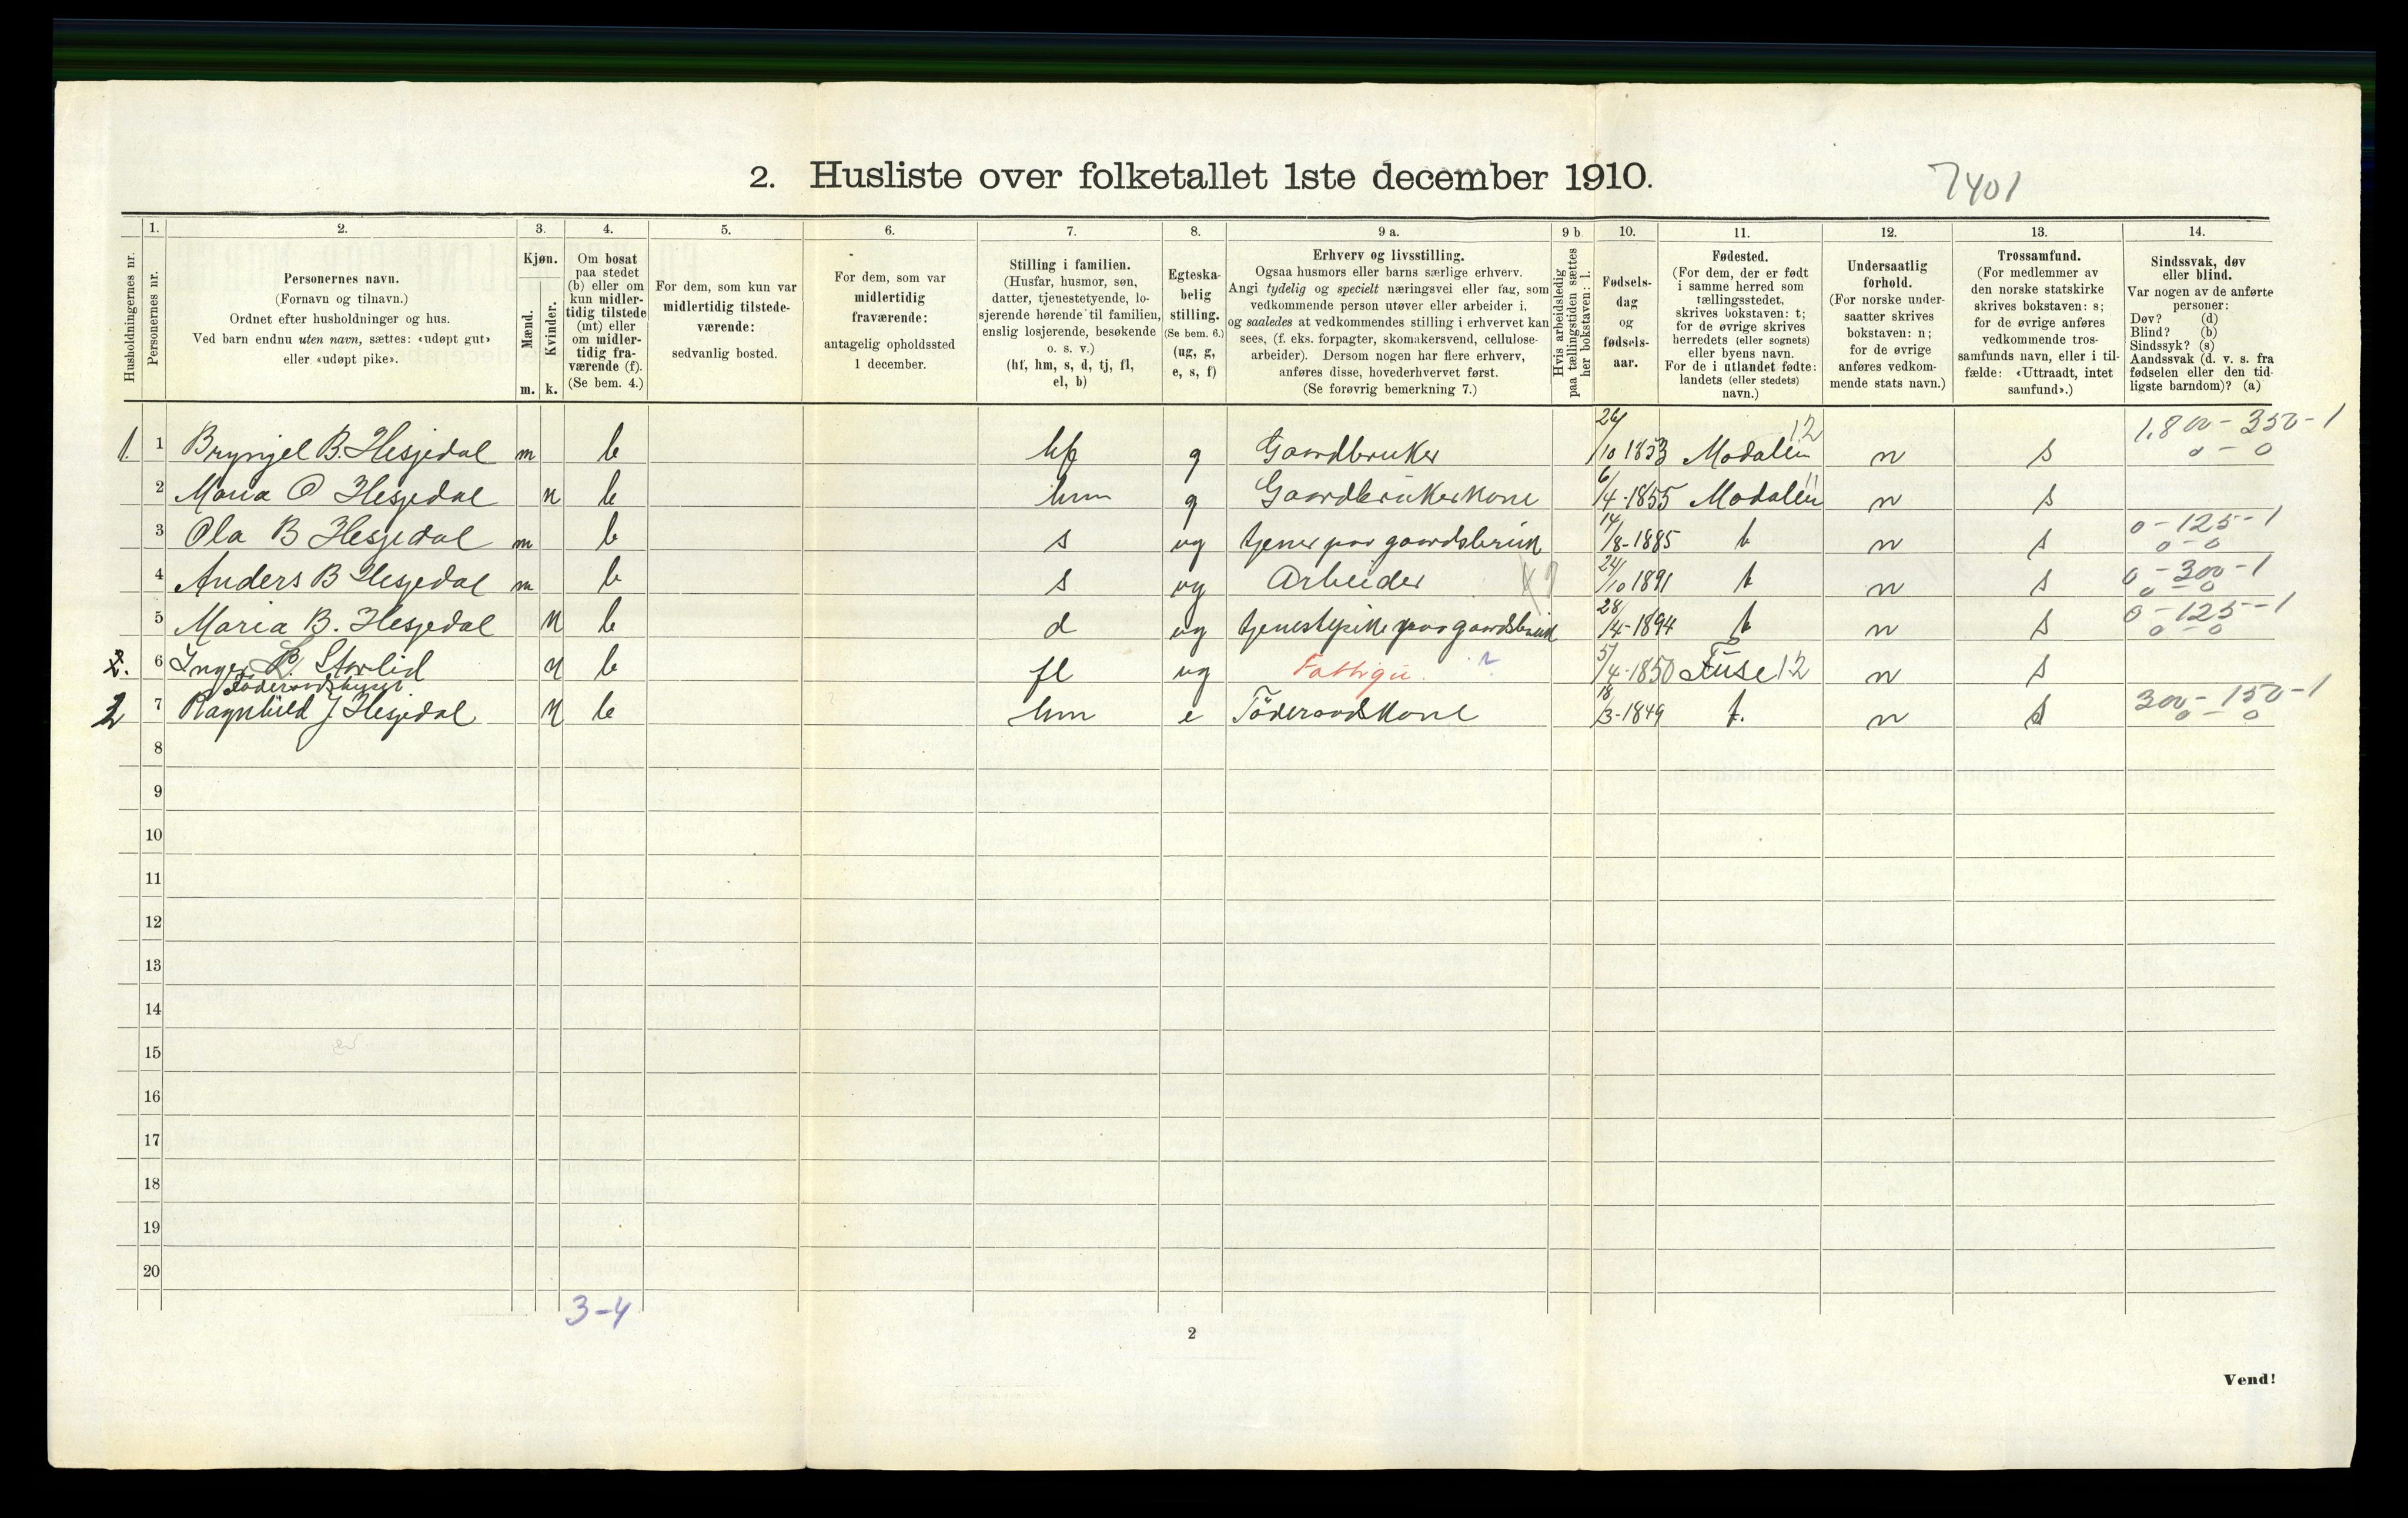 2. Husliste over folketallet 1ste december 1910.
7401
Husholdningernes nr.
1.
Personernes nr.
2.
Personernes navn.
(Fornavn og tilnavn.)
Ordnet efter husholdninger og hus.
Ved barn endnu uten navn, sættes: «udøpt gut»
eller «udøpt pike».
3.
Kjøn.
Mænd.
Kvinder.
m. k.
4.
Om bosat
paa stedet
(b) eller om
kun midler-
tidig tilstede
(mt) eller
om midler-
tidig fra-
værende (f).
(Se bem. 4.)
5.
For dem, som kun var
midlertidig tilstede-
værende:
sedvanlig bosted.
6.
For dem, som var
midlertidig
fraværende:
antagelig opholdssted
1 december.
7.
Stilling i familien.
(Husfar, husmor, søn,
datter, tjenestetyende, lo-
sjerende hørende til familien,
enslig losjerende, besøkende
o. s. v.)
(hf, hm, s, d, tj, fl,
el, b)
8.
Egteska-
belig
stilling.
(Se bem. 6.)
(ug, g,
e, s, f)
9 a.
Erhverv og livsstilling.
Ogsaa husmors eller barns særlige erhverv.
Angi tydelig og specielt næringsvei eller fag, som
vedkommende person utøver eller arbeider i,
og saaledes at vedkommendes stilling i erhvervet kan
sees, (f. eks. forpagter, skomakersvend, cellulose-
arbeider). Dersom nogen har flere erhverv,
anføres disse, hovederhvervet først.
(Se forøvrig bemerkning 7.)
9 b.
Hvis arbeidsledig
paa tællingstiden sættes
her bokstaven: l.
10.
Fødsels-
dag
og
fødsels-
aar.
11.
Fødested.
(For dem, der er født
i samme herred som
tællingsstedet,
skrives bokstaven: t;
for de øvrige skrives
herredets (eller sognets)
eller byens navn.
For de i utlandet fødte:
landets (eller stedets)
navn.)
12.
Undersaatlig
forhold.
(For norske under-
saatter skrives
bokstaven: n;
for de øvrige
anføres vedkom-
mende stats navn.)
13.
Trossamfund.
(For medlemmer av
den norske statskirke
skrives bokstaven: s;
for de øvrige anføres
vedkommende tros-
samfunds navn, eller i til-
fælde: «Uttraadt, intet
samfund».)
14.
Sindssvak, døv
eller blind.
Var nogen av de anførte
personer:
Døv? (d)
Blind? (b)
Sindssyk? (s)
Aandssvak (d. v. s. fra
fødselen eller den tid-
ligste barndom)? (a)
1. 1 Brynjel B. Hesjedal m b hf g Gaardbruker 26/10 1853 Modalen 12 n s 1.800 - 350 - 1
0 - 0
2 Maria O Hesjedal k b hm g Gaardbrukerkone 6/4-1855 Modalen 11 n s
3 Ola B Hesjedal m b s ug tjener paa gaardsbruk 14/8-1885 t n s 0 - 125 - 1
0 - 0
4 Anders B Hesjedal m b s ug Arbeider 24/10 1891 t n s 0 - 300 - 1
0 - 0
5 Maria B. Hesjedal k b d ug tjenestepike paa gaardsbruk 28/4-1894 t n s 0 - 125 - 1
0 - 0
2. 6 Inger Storlid k b fl ug Fattigu. 5/4-1850 Fuse 12 n s
Föderaadshuset
2 7 Ragnhild J Hesjedal k b hm e Föderaadskone 18/3-1849 t. n s 300 - 150 - 1
0 - 0
8
9
10
11
12
13
14
15
16
17
18
19
20
3-4
2
Vend!